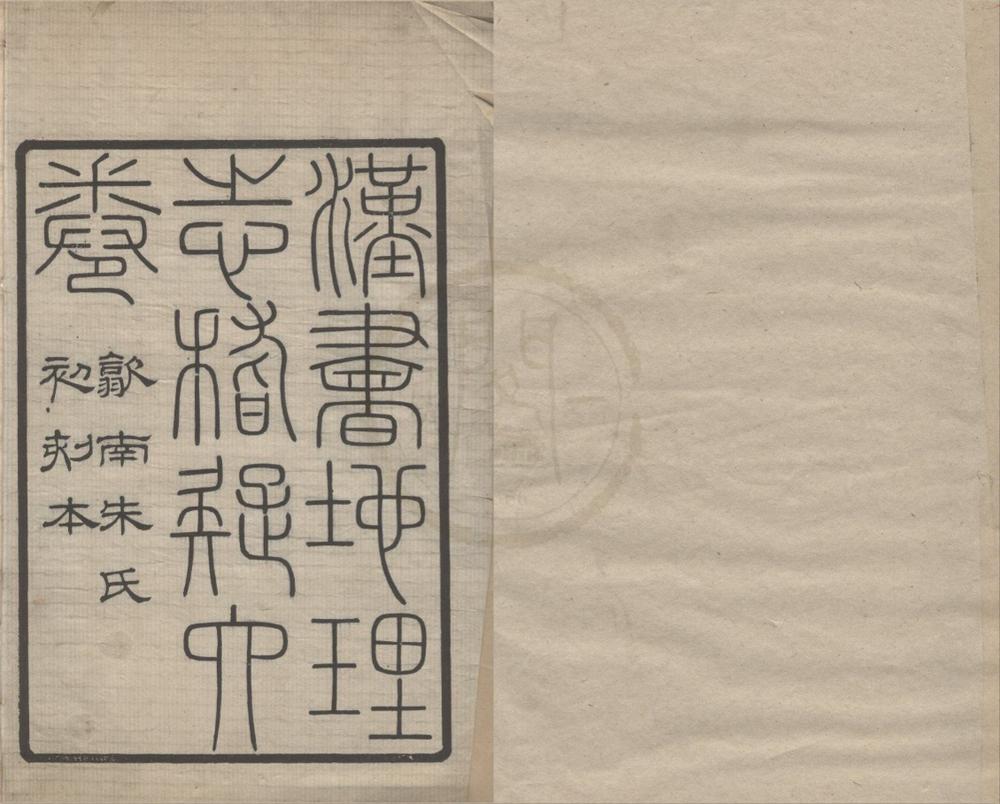 漢書地理
志稽疑六
卷
歙南朱氏
初刻本